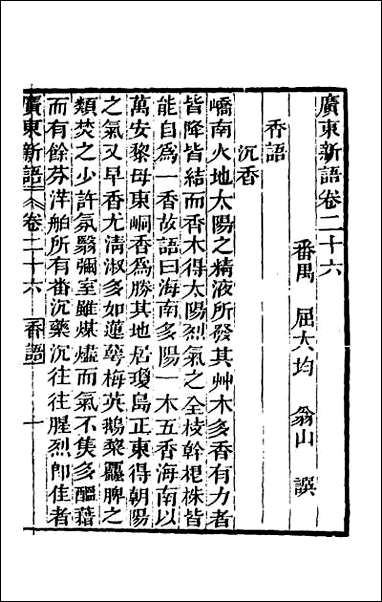 廣東新語卷二十六
番禺 屈大均 翁山 譔
香語
沉香
嶠南火地太陽之精液所發其艸木多香有力者
皆降皆結而香木得太陽烈氣之全枝幹根株皆
能自為一香故語曰海南多陽一木五香海南以
萬安黎母東峒香爲勝其地居瓊島正東得朝陽
之氣又早香尤清淑多如蓮萼梅英鵝梨蠶脾之
類焚之少許氛翳彌室雖煤燼而氣不焦多醞藉
而有餘芬洋舶所有番沉藥沉往往腥烈卽佳者
廣東新語 卷二十六 香語 一